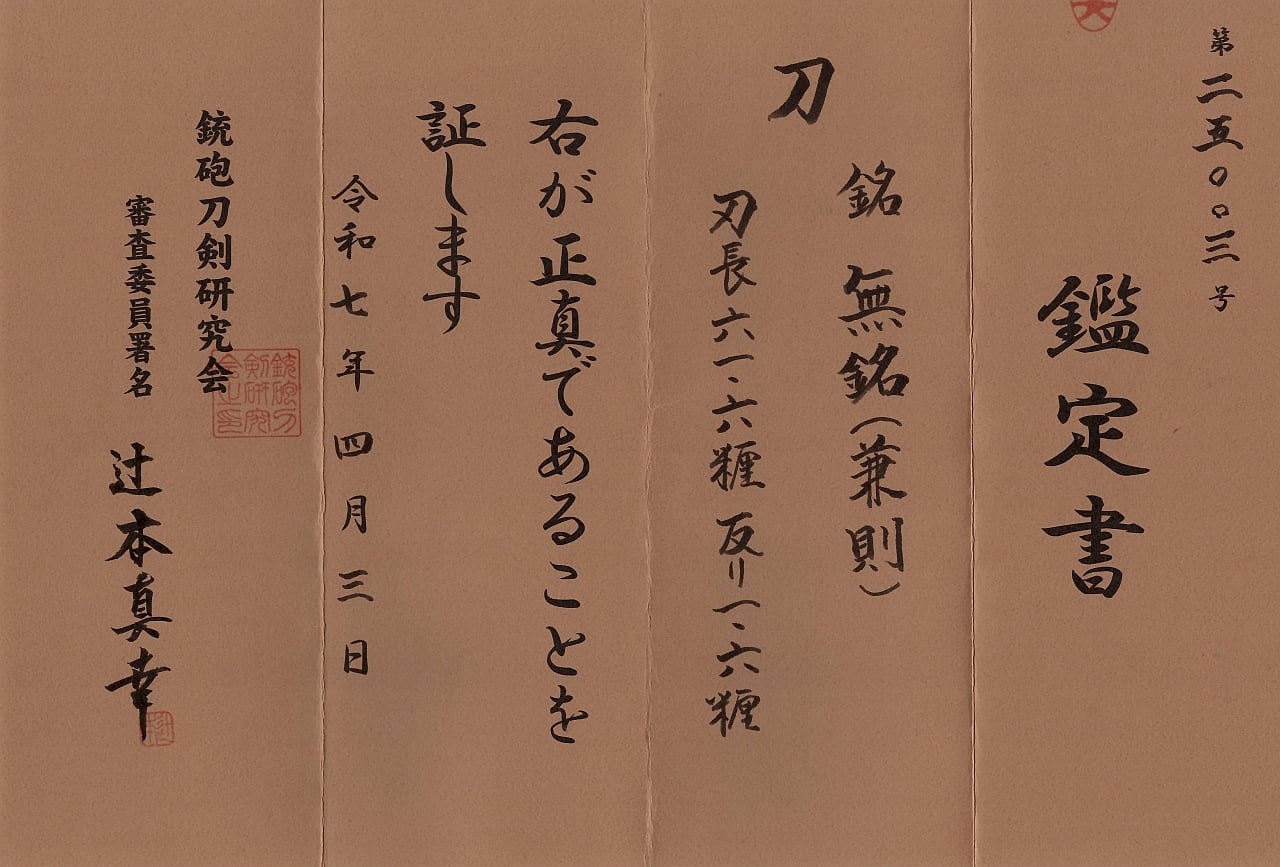 第二五〇〇三号
鑑定書
刀
銘 無銘(兼則)
刃長六一、六糎 反リ一、六糎
右が正真であることを
証します
令和七年四月三日
銃砲刀剣研究会
審査委員署名 辻本真幸